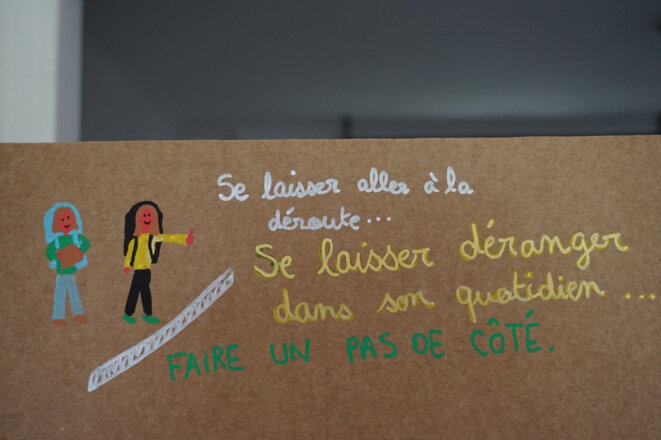 Se laisser aller à la
déroute...
Se laisser déranger
dans son quotidien ...
FAIRE UN PAS DE CÔTÉ.